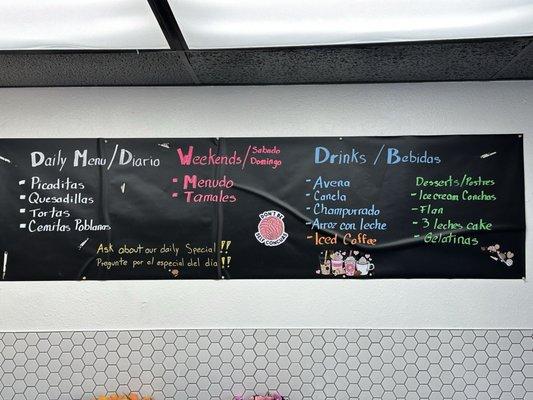 Daily Menu/Diario
- Picaditas
- Quesadillas
- Tortas
- Cemitas Poblanas
Ask about our daily Special !!
Pregunte por el especial del dia !!
Weekends/Sabado
Domingo
- Menudo
- Tamales
DON'T BE
CONCHA
Drinks/Bebidas
- Avena
- Canela
- Champurrado
- Arroz con leche
- Iced Coffee
Desserts/Postres
- Ice cream Conchas
- Flan
- 3 leches cake
- Gelatinas